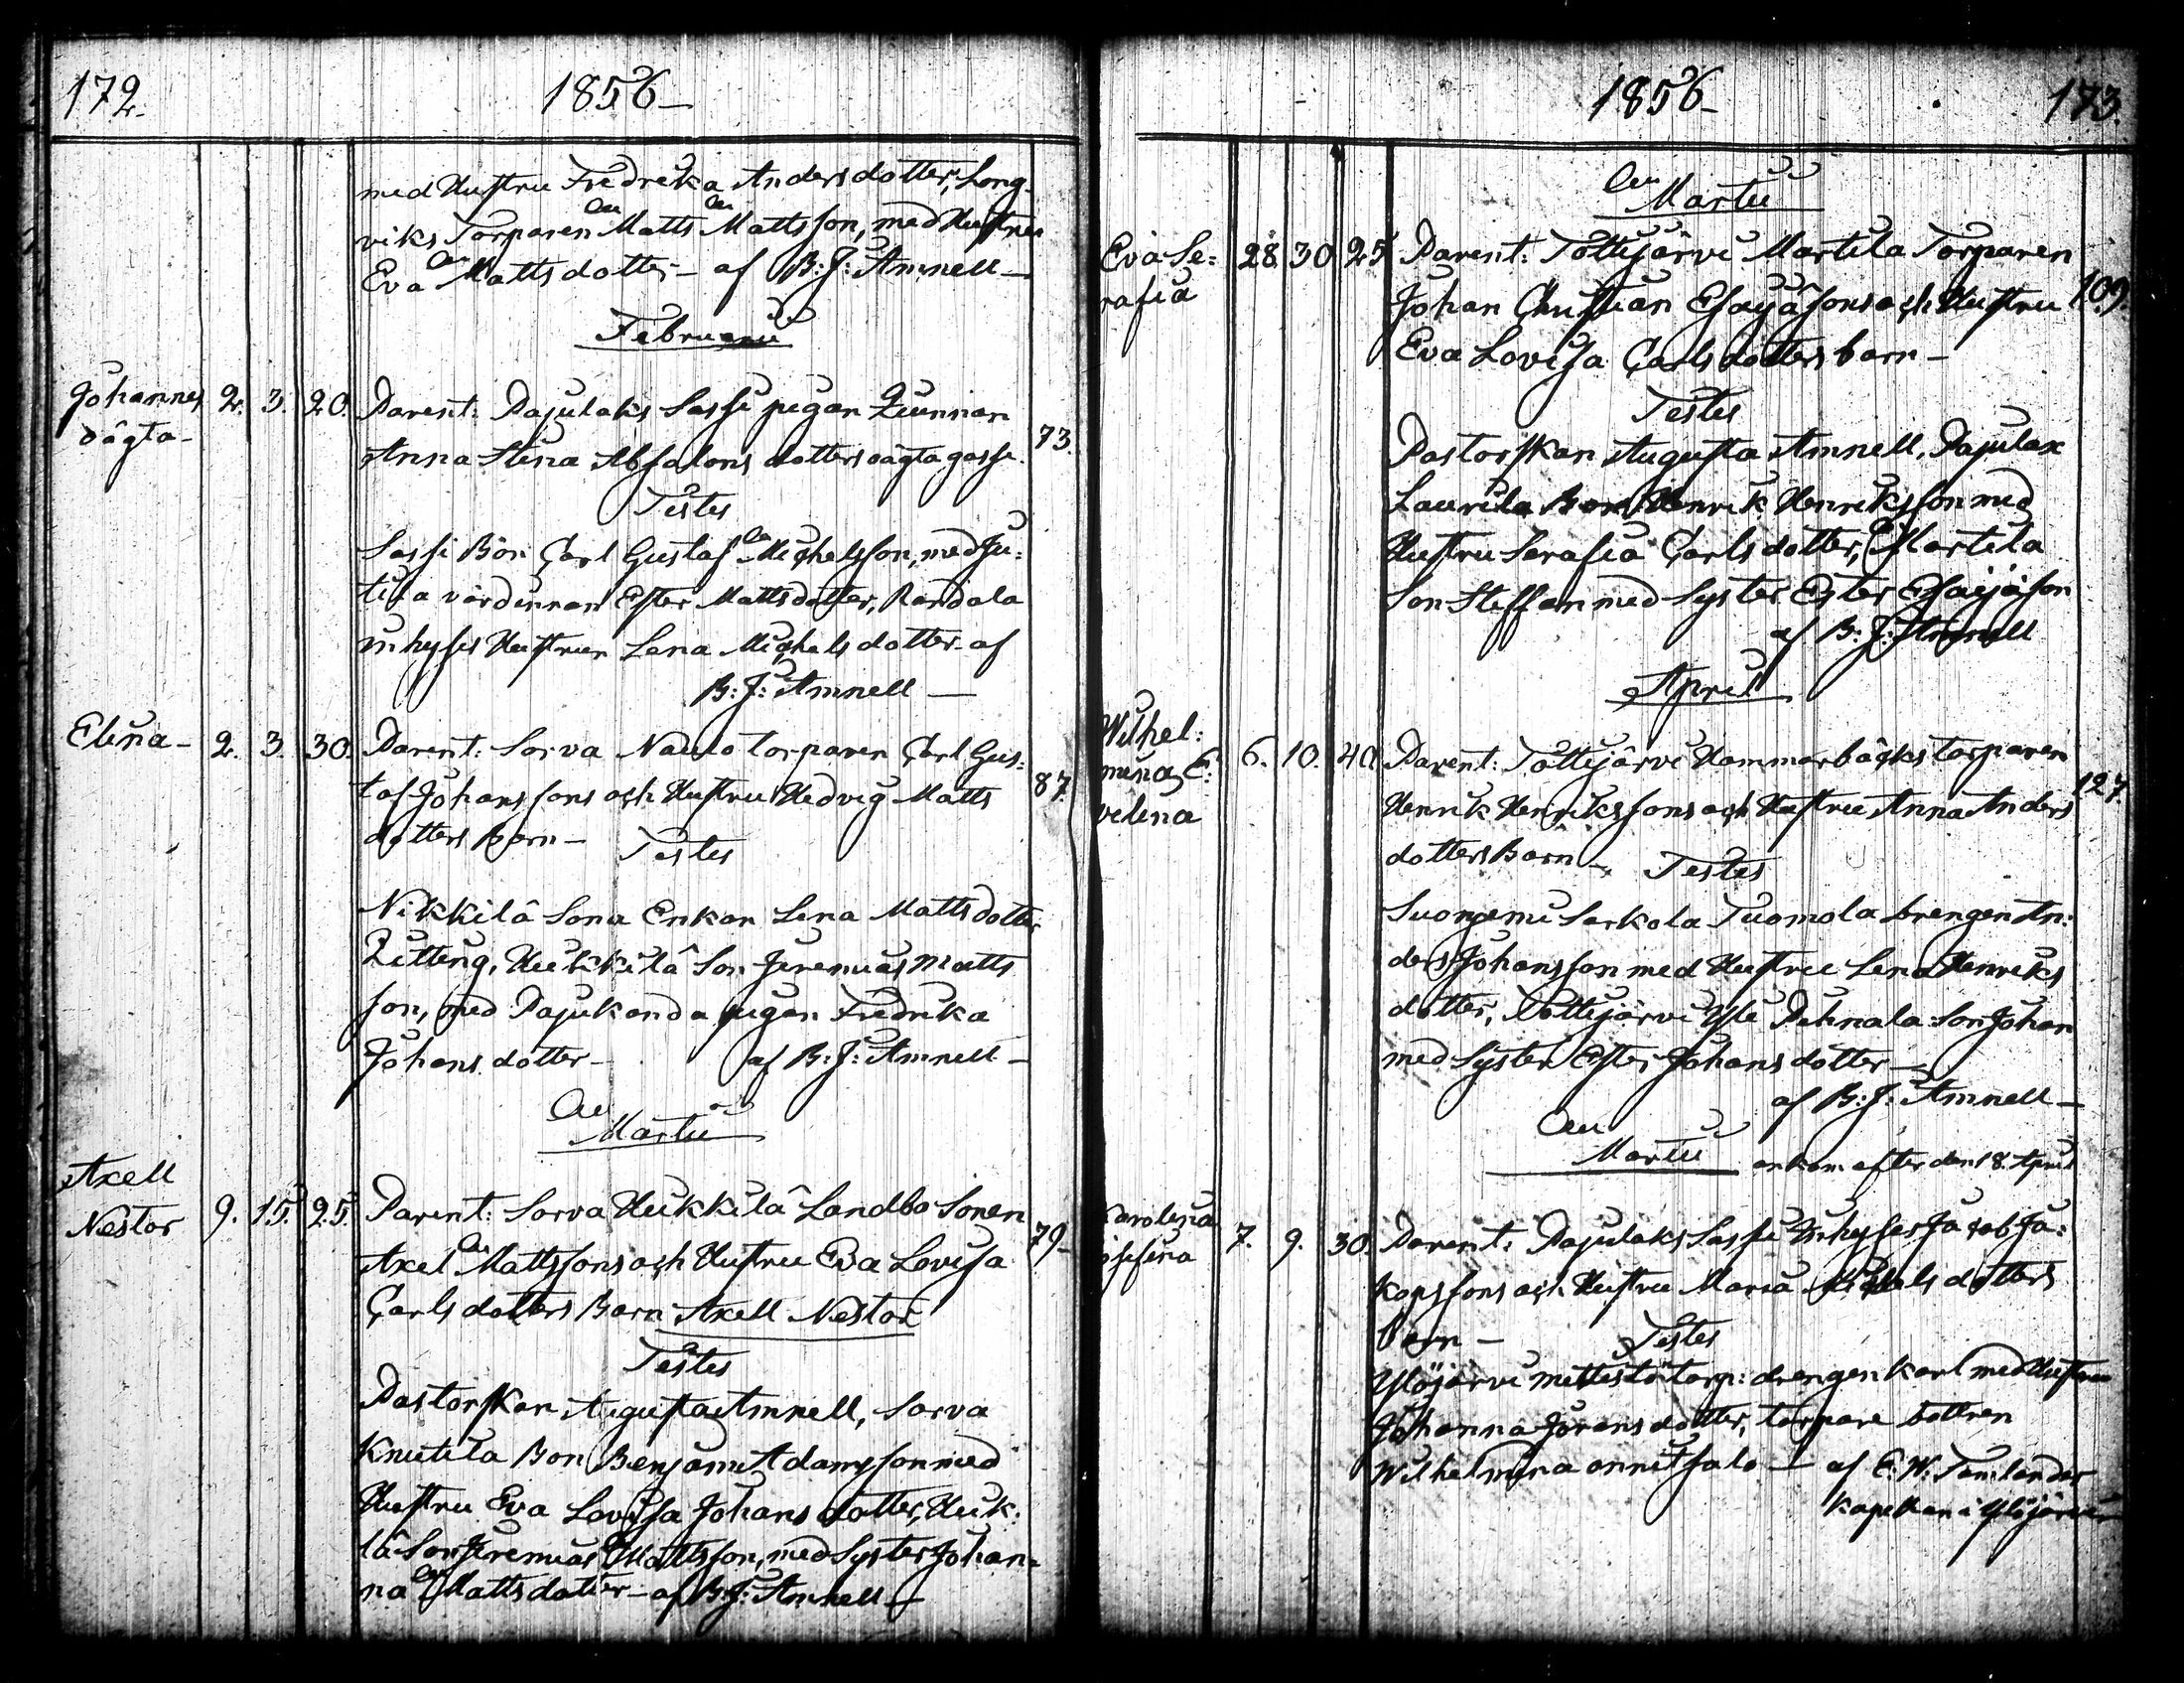 172.
1856
med Hustru Fredrika Andersdotter, Long
viks Torparen Matts Mattsson, med Hustrun
Eva Mattsdotter - af B: J: Amnell -
Februarii
Johannes 2. 3. 20. Parent: Pajulaks Sassi pigan Quinnan
oägta - Anna Stina Absalons dotters oägta gosse. 73.
Testes
Sassi Bon Carl Gustaf Michelsson, med Ju:
tila värdinnan Ester Mattsdotter, Randala
inhyses Hustrun Lena Michelsdotter - af
B: J: Amnell -
Elina - 2. 3. 30. Parent: Sorva Naulo torparen Carl Gus:
taf Johanssons och Hustru Hedvig Matts 87.
dotters Barn - Testes
Nikkilä Sona Enkan Lena Mattsdotter
Hukkilä Son Jeremias Matts
son, med Pajukanda pigan Fredrika
Johans dotter - af B: J: Amnell -
Martii
Axell
Nestor 9. 15. 25. Parent: Sorva Hukkilä Landbo Sonen 79 -
Axel Mattssons och Hustru Eva Lovisa
Carls dotters Barn Axell Nestor
Testes
Pastorskan Augusta Amnell, Sorva
Knutila Bon Benjamit Adamsson med
Hustru Eva Lovisa Johans dotter, Huk:
lä Son Jeremias Mattsson, med Syster Johan=
na Mattsdotter - af B: J: Amnell -
1856
173.
Martii
Eva Se: 28. 30 25 Parent: Tottijärvi Martila Torparen
rafia Johan Christian Esaiassons och Hustru 109.
Eva Lovisa Carls dotters barn -
Testes
Pastorskan Augusta Amnell, Pajulax
Laurila Bon Henrik Henriksson med
Hustru Serafia Carls dotter, Martila
Son Steffan med Syster Ester Esaiason
af B: J: Amnell
April
Wilhel:
mina E: 6. 10. 40 Parent: Tottijärvi Hammarbäcks torparen
velina Henrik Henrikssons och Hustru Anna Anders 127.
dotters Barn - Testes
Suoniemi Sarkola Tuomola drengen An:
ders Johansson med Hustru Lena Henriks
dotter, Tottijärvi Yli Pehnala Son Johan
med Syster Ester Johans dotter -
af B: J: Amnell -
Martii ankom efter den 18. April
Karolina 7. 9. 30. Parent: Pajulaks Sassi Inhyses Jakob Ja:
kopssons och Hustru Maria Michels dotters
barn - Testes
Ylöjärvi Mettistö torp: drengen Karl med Hustrun
Johanna Jörans dotter, torpare dottren
Wilhelmina - af E: W: Tamlander
Kapellan i Ylöjärvi